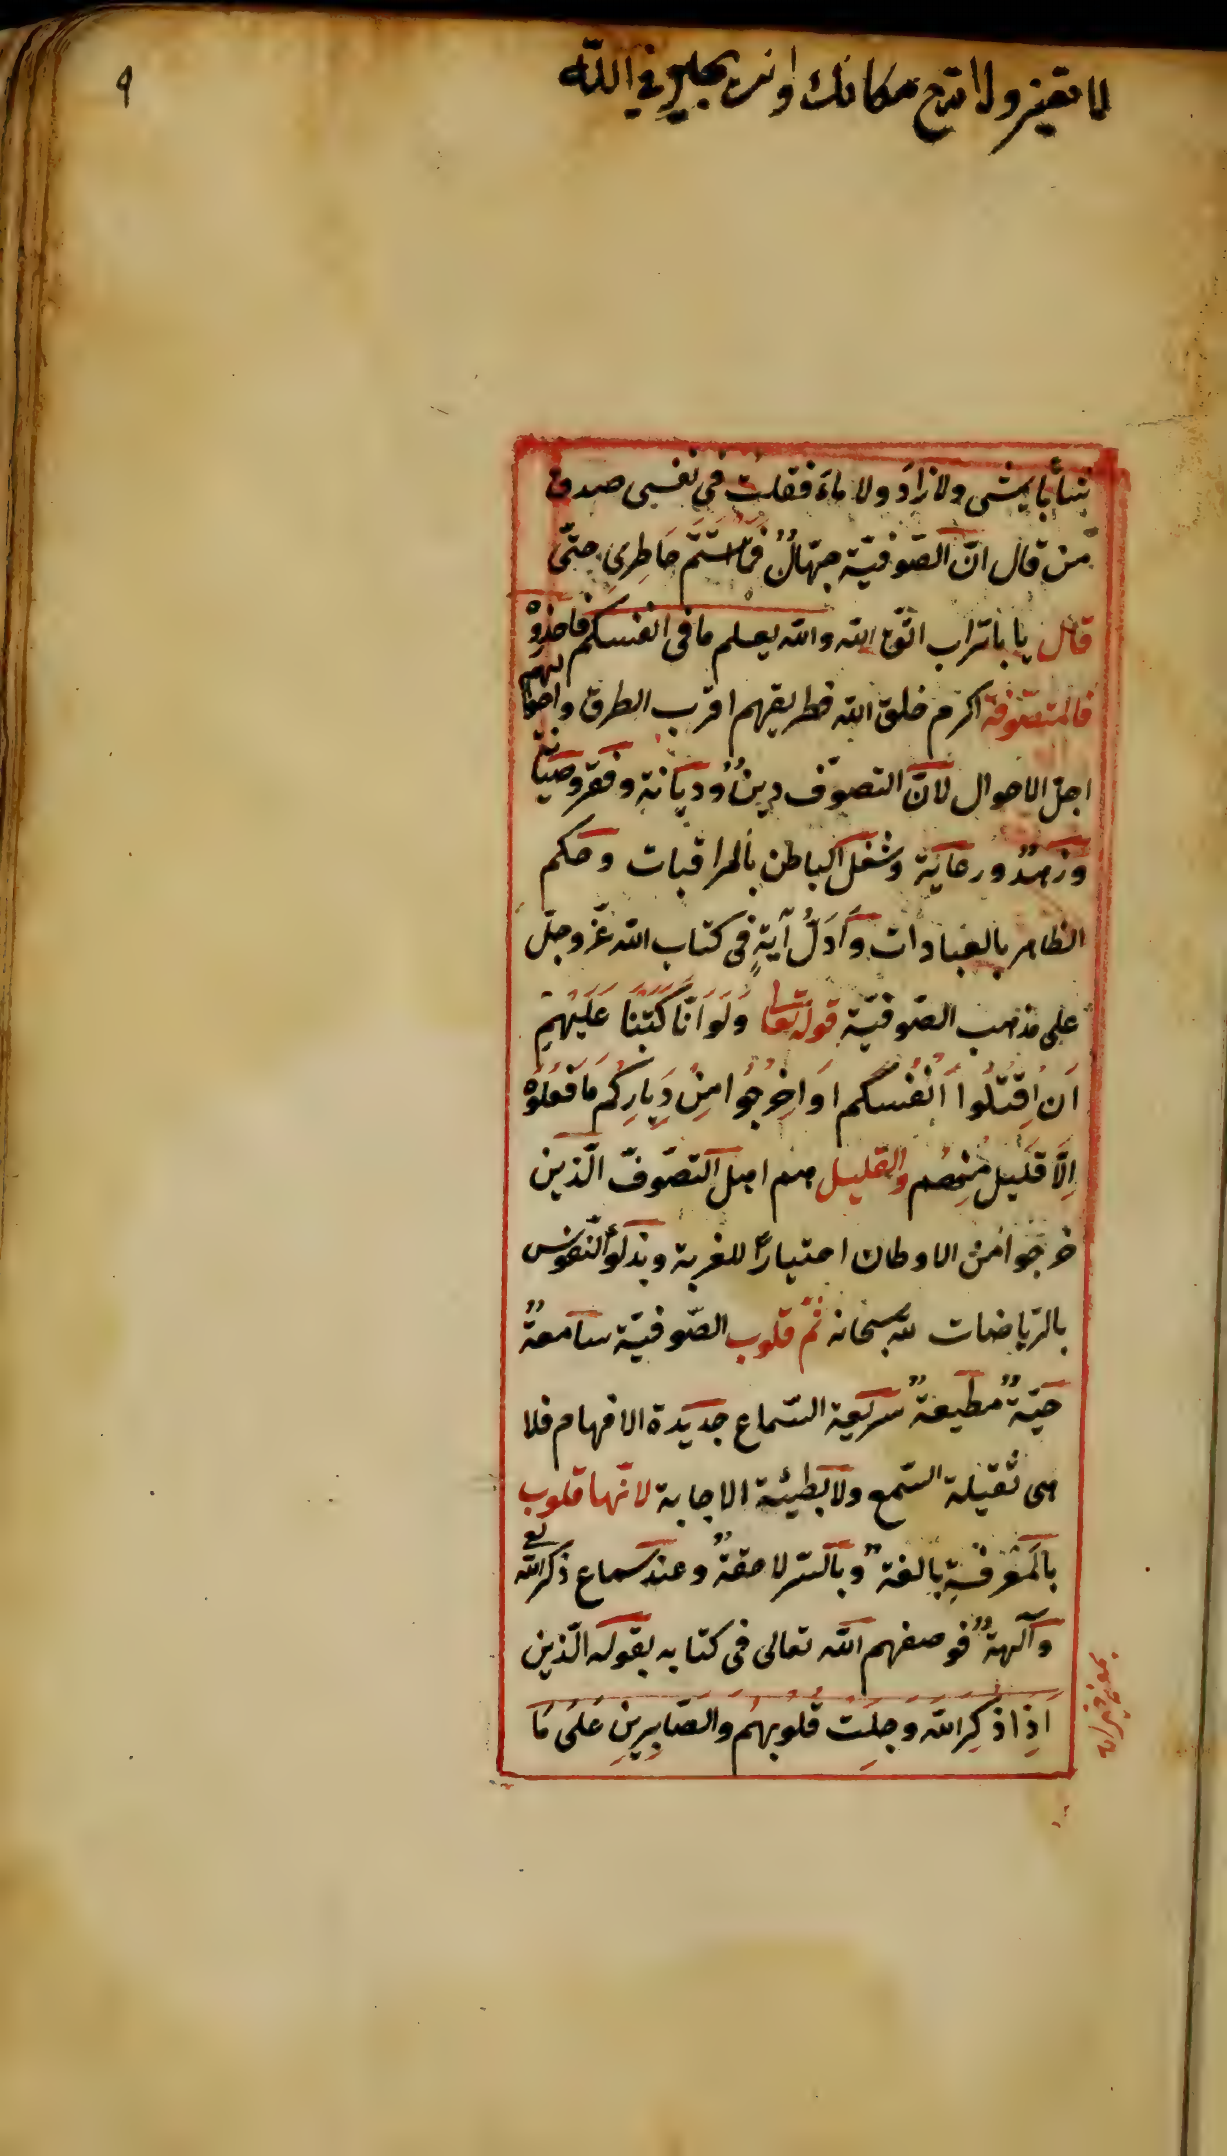 ٩
لا تقيز ولا تدع مكانك وانت في الله
شابا يمشى ولا زاد ولا ماء فقلت فى نفسى صدق
من قال انّ الصّوفيّة جهّالٌ فما استتمّ خاطرى حتّى
قال يا باتراب اتّق الله والله يعلم ما فى انفسكم فاحذروه
فالمتصوّفة اكرم خلق الله فطريقهم اقرب الطرق واحوالهم
اجلّ الاحوال لانّ التصوّف دينٌ وديانة وفقر وصيانة
وزهدٌ ورعاية وشغل الباطن بالمراقبات وحكم
الظاهر بالعبادات وَادَلُّ آيةٍ فى كتاب الله عزّ وجلّ
على مذهب الصّوفيّة قوله تعالى وَلَوْ اَنَّا كَتَبْنَا عَلَيْهِمْ
اَنِ اقْتُلُوا اَنْفُسَكُم اَوِ اخْرُجُوا مِنْ دِيَارِكُم مَا فَعَلُوهُ
اِلَّا قَلِيل مِنْهُم والقليل هم اهل التصوّف الّذين
خرجوا من الاوطان اختياراً للغربة وبذلوا النّفوس
بالرّياضات لله سبحانه ثمّ قلوب الصّوفيّة سامعةٌ
حيّةٌ مطيعةٌ سريعة السّماع حديدة الافهام فلا
هى ثقيلة السّمع ولا بطيئة الاجابة لانّها قلوب
بالمعرفة بالغةٌ وبالسّر لاحقةٌ وعند سماع ذكر الله تع
وآلهةٌ فوصفهم الله تعالى فى كتابه بقوله الّذين
اِذَا ذُكِرَ اللهُ وَجِلَتْ قُلُوبُهُم وَالصَّابِرِينَ عَلَى مَا